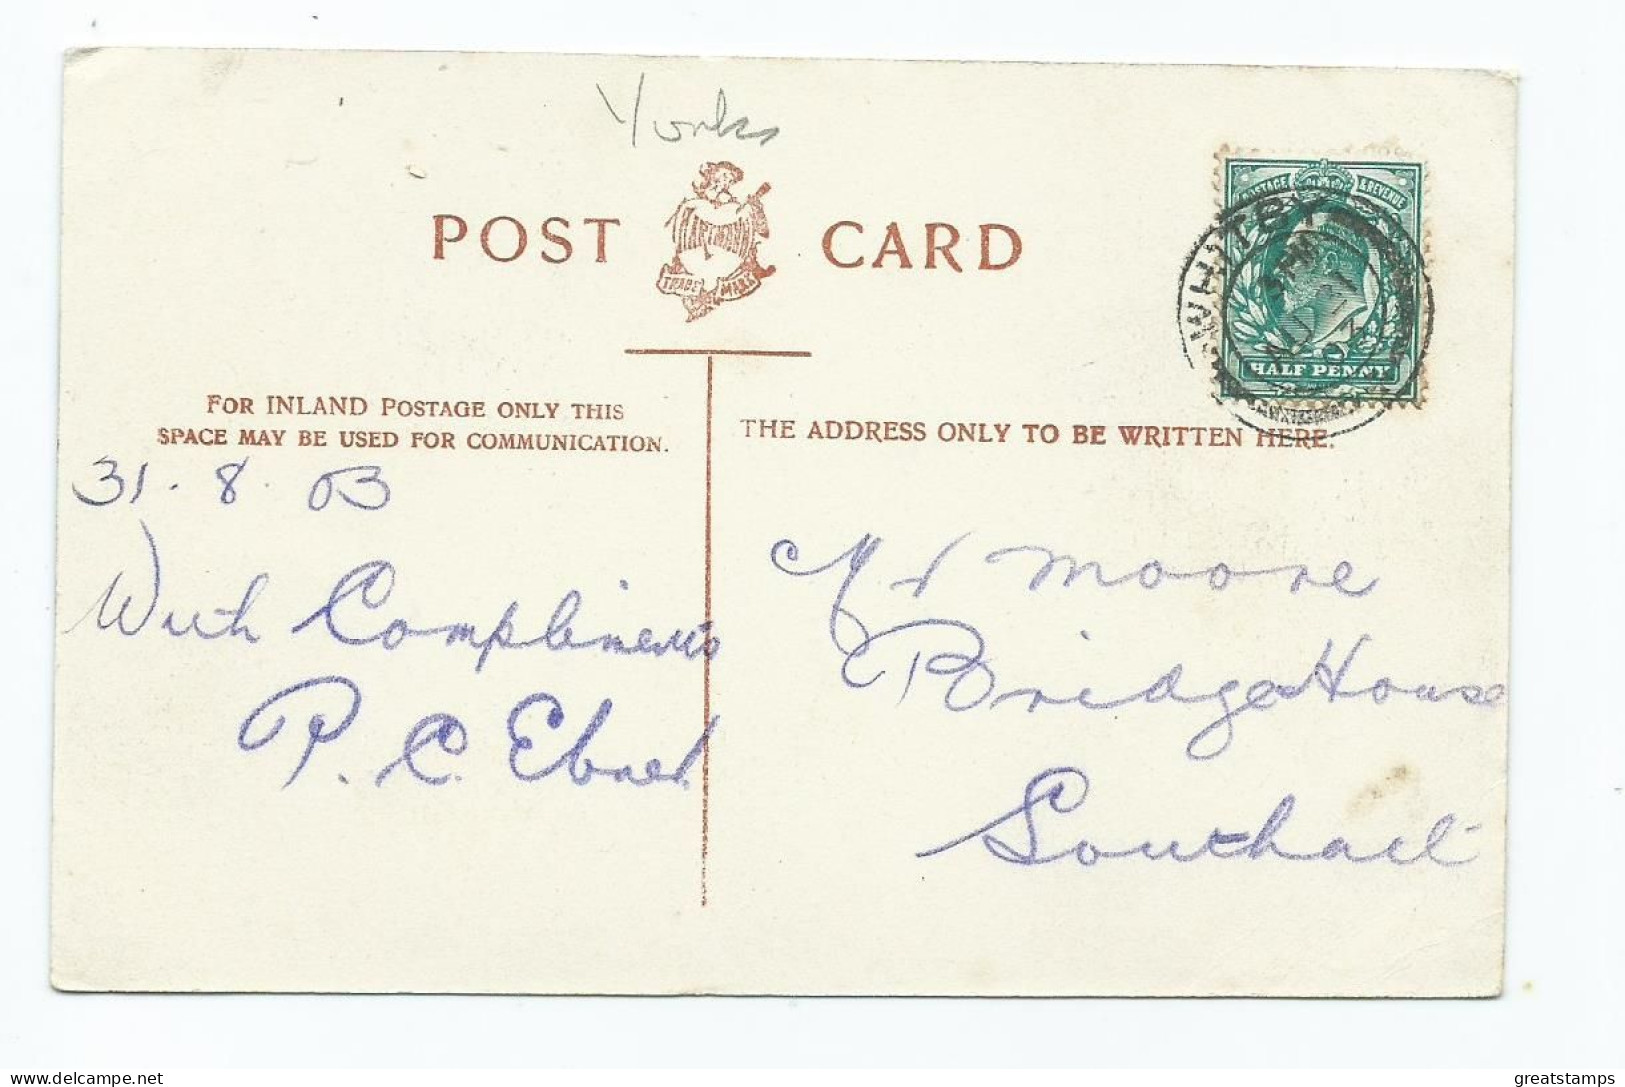 Yorks
POST CARD
HARTMANN
TRADE MARK
POSTAGE & REVENUE
WHITBY
AU 31
03
HALF PENNY
FOR INLAND POSTAGE ONLY THIS
SPACE MAY BE USED FOR COMMUNICATION.
THE ADDRESS ONLY TO BE WRITTEN HERE.
31. 8. 03
With Compliments
P. C.
Mr Moore
Bridge House
Southall
greatstamps